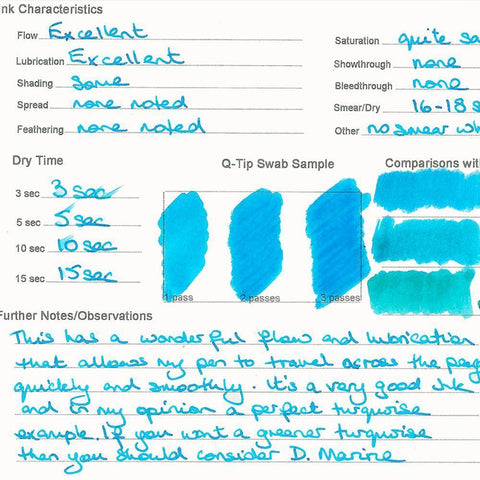 Ink Characteristics
Flow Excellent
Lubrication Excellent
Shading Some
Spread none noted
Feathering none noted
Saturation quite
Showthrough none
Bleedthrough none
Smear/Dry 16-18
Other no smear
Dry Time
3 sec 3 sec
5 sec 5 sec
10 sec 10 sec
15 sec 15 sec
Q-Tip Swab Sample
1 pass 2 passes 3 passes
Comparisons
Further Notes/Observations
This has a wonderful flow and lubrication
that allows my pen to travel across the page
quickly and smoothly. It's a very good ink
and in my opinion a perfect turqwoise
example. If you want a greener turqwoise
then you should consider D. Marine